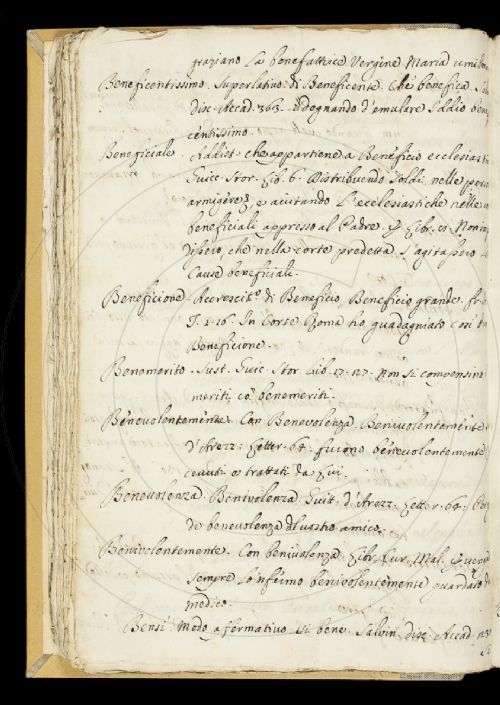 graziano la benefattrice Vergine Maria
Beneficentissimo. Superlativo di Beneficente. Che benefica. Sal
disc. Accad. 363. Sdegnando d'emulare Iddio bene
centissimo.
Beneficiale. Addiet. che appartiene a Beneficio ecclesiasti
Guicc. Stor. Lib. 6. Distribuendo Soldi nelle pers
armigere, e aiutando l'ecclesiastiche nelle c
beneficiali appresso al Padre. Libr.
che nella corte predetta s'agitassero le
Cause beneficiali.
Beneficione. Accrescit.º di Beneficio, Beneficio grande. fr.
T. 1. 16. In Corte Roma ho guadagniato così bu
Beneficione.
Benemerito. Sust. Guic. Stor. Lib. 17. 127. Non si compensino
meriti co' benemeriti.
Benevolentemente. Con Benevolenza. Benivolentemente
d'Arezz: Letter. 64. furono benevolentemente
cevuti o trattati da Lui.
Benevolenza. Benivolenza. Guit. d'Arezz. Letter. 64.
de benevolenza al vostro amico.
Benivolentemente. Con benivolenza. Libr. Cur. Mal.
sempre lo nfermo benivolentemente guardato d
medico.
Bensì. Modo affermativo. si bene. Salvin. disc. Accad.